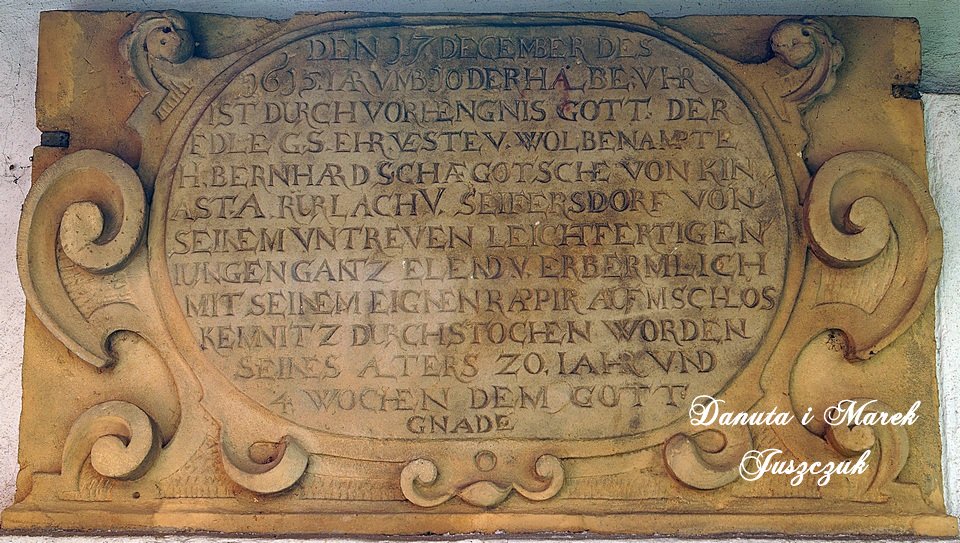 DEN 17 DECEMBER DES
1615 IAR VMB 10 DERHALBE VHR
IST DURCH VORHENGNIS GOTT. DER
EDLE G.S. EHRVESTE V. WOLBENAMPTE
H. BERNHARD SCHÆGOTSCHE VON KIN
AST. A. RURLACH V. SEIFERSDORF VON
SEINEM VNTREVEN LEICHFERTIGEN
IUNGEN GANTZ ELEND V. ERBERMLICH
MIT SEINEM EIGNEN RAPIR AUFM SCHLOS
KEMNITZ DURCHSTOCHEN WORDEN
SEINES ALTERS 20. IAHR VND
4 WOCHEN DEM GOTT
GNADE
Danuta i Marek
Juszczuk